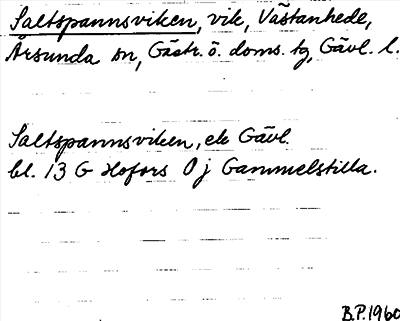 Saltspannsviken, vik, Västanhede,
Årsunda sn, Gästr. ö. doms. tg, Gävl. l.
Saltspannsviken, ek Gävl.
bl. 13 G Hofors 0 j Gammelstilla.
B.P. 1960